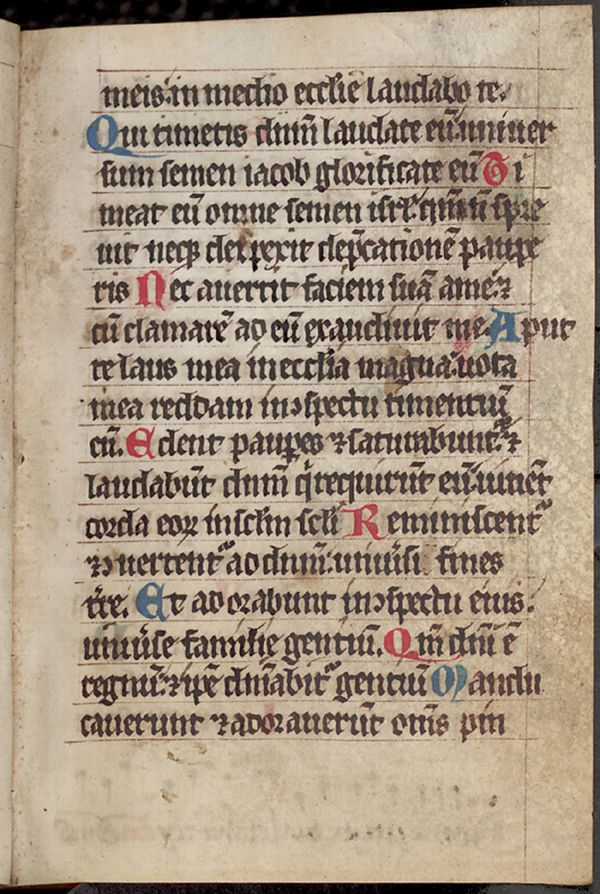 meis: in medio ecclie laudabo te.
Qui timetis dnm̄ laudate eū: uniuer
sum semen iacob glorificate eū Ti
meat eū omne semen isrl̄: qm̄ n̄ spre
uit neqꝫ despexit dep̄cationē paupe
ris Nec auertit faciem suā a me: ⁊
cū clamarē ad eū exaudiuit me. Aput
te laus mea in ecclīa magna: uota
mea reddam in ɔspectu timentiū
eū. Edent paup̄es ⁊ saturabunt᷑: ⁊
laudabūt dnm̄ q̄ requirūt eū: uiuēt
corda eoꝝ in sclm̄ scli Reminiscent᷑
⁊ ɔuertent᷑ ad dnm̄: uniūsi fines
t̄re. Et adorabunt in ɔspectu eius:
uniūse familie gentiū. Qm̄ dn̄i ē
regnū: ⁊ ip̄e dn̄abit᷑ gentiū Mandu
cauerunt ⁊ adorauerūt om̄s pin